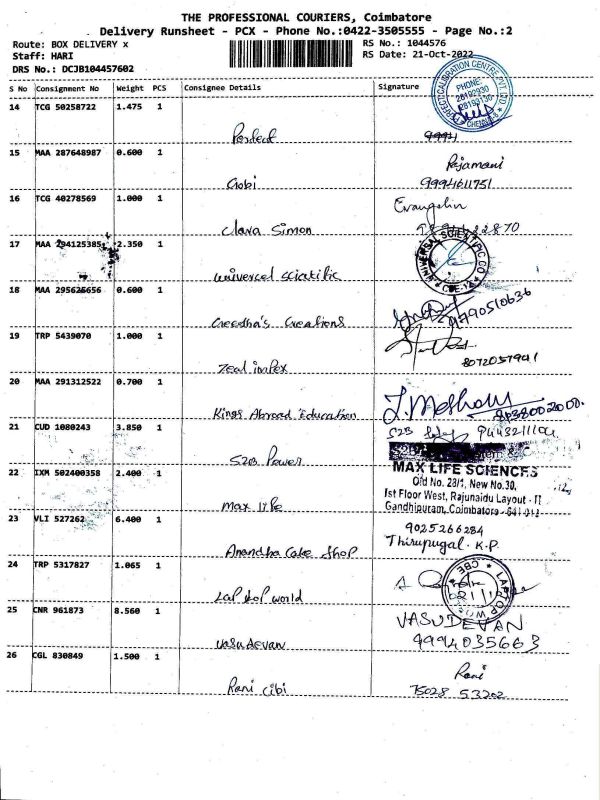 THE PROFESSIONAL COURIERS, Coimbatore
Delivery Runsheet - PCX - Phone No.:0422-3505555 - Page No.:2
Route: BOX DELIVERY x
RS No.: 1044576
Staff: HARI
RS Date: 21-Oct-2022
DRS No.: DCJB104457602
S No Consignment No Weight PCS Consignee Details Signature
PERFECT CALIBRATION CENTRE PVT LTD
PHONE:
CHENNAI
14 TCG 50258722 1.475 1
15 MAA 287648987 0.600 1
Gobi
Rajamani
9994611751
16 TCG 40278569 1.000 1
Clara Simon
Evangelin
17 MAA 294125385 2.350 1
univercel scientific
UNIVERSAL SCIENTIFIC CO
CBE-12
18 MAA 295626656 0.600 1
Creedha's Creations
9790510636
19 TRP 5439070 1.000 1
Zeal impex
8072057941
20 MAA 291312522 0.700 1
Kings Abroad Education
21 CUD 1080243 3.850 1
S2B Power
S2B
22 IXM 502400358 2.400 1
Max life
MAX LIFE SCIENCES
Old No. 28/1, New No.30,
Ist Floor West, Rajunaidu Layout - II
Gandhipuram, Coimbatore - 641 012
23 VLI 527262 6.400 1
Anandha Cake Shop
9025266284
Thirupugal. K.P
24 TRP 5317827 1.065 1
Laptop world
LAPTOP
CBE
25 CNR 961873 8.560 1
vasudevan
VASUDEVAN
9994035663
26 CGL 830849 1.500 1
Rani cibi
Rani
75028 53202